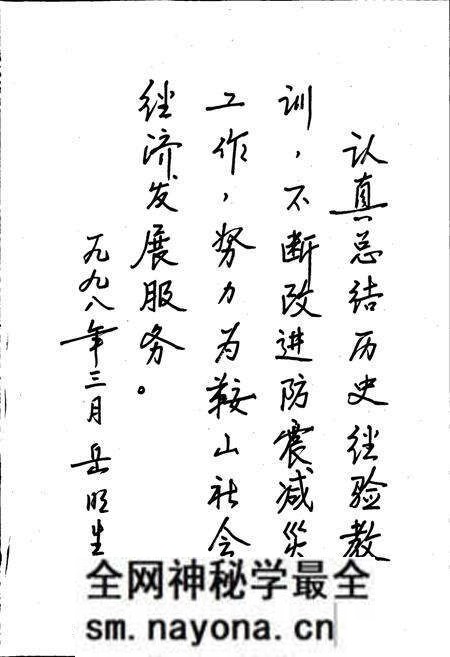 认真总结历史经验教
训，不断改进防震减灾
工作，努力为鞍山社会
经济发展服务。
一九九八年三月 岳明生
全网神秘学最全
sm.nayona.cn